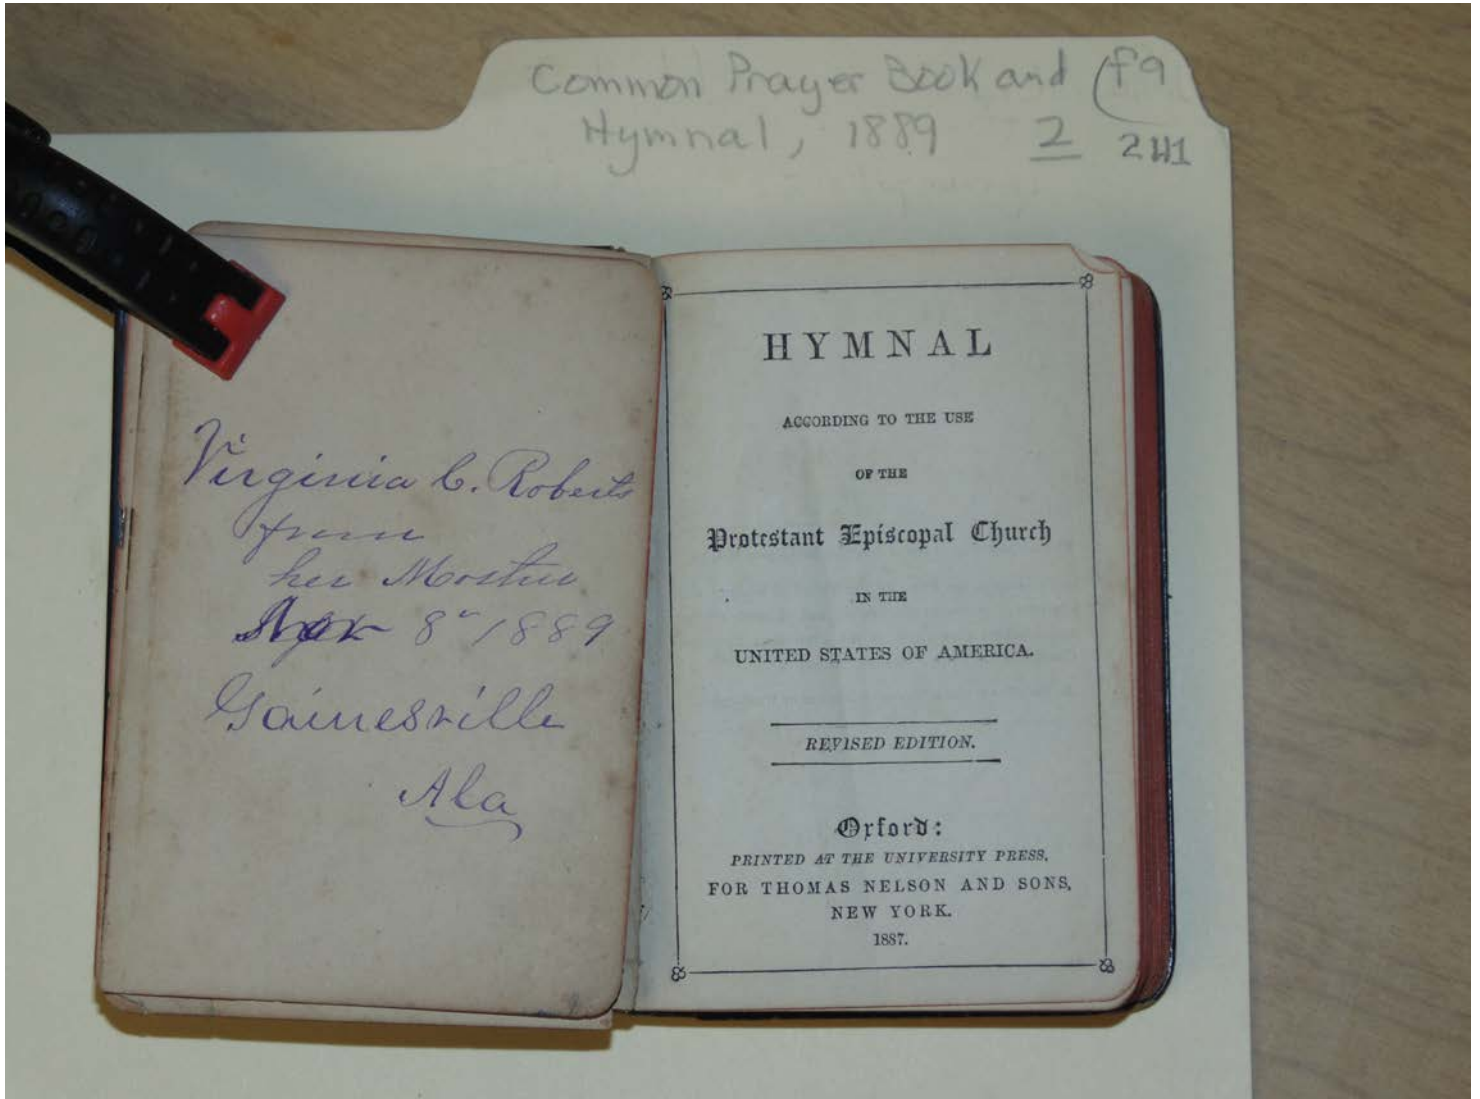 Common Prayer Book and (f9
Hymnal, 1889 2 2H1
Virginia C. Roberts
from
her Mother
8" 1889
Gainesville
Ala
HYMNAL
ACCORDING TO THE USE
OF THE
Protestant Episcopal Church
IN THE
UNITED STATES OF AMERICA.
REVISED EDITION.
Oxford:
PRINTED AT THE UNIVERSITY PRESS,
FOR THOMAS NELSON AND SONS,
NEW YORK.
1887.